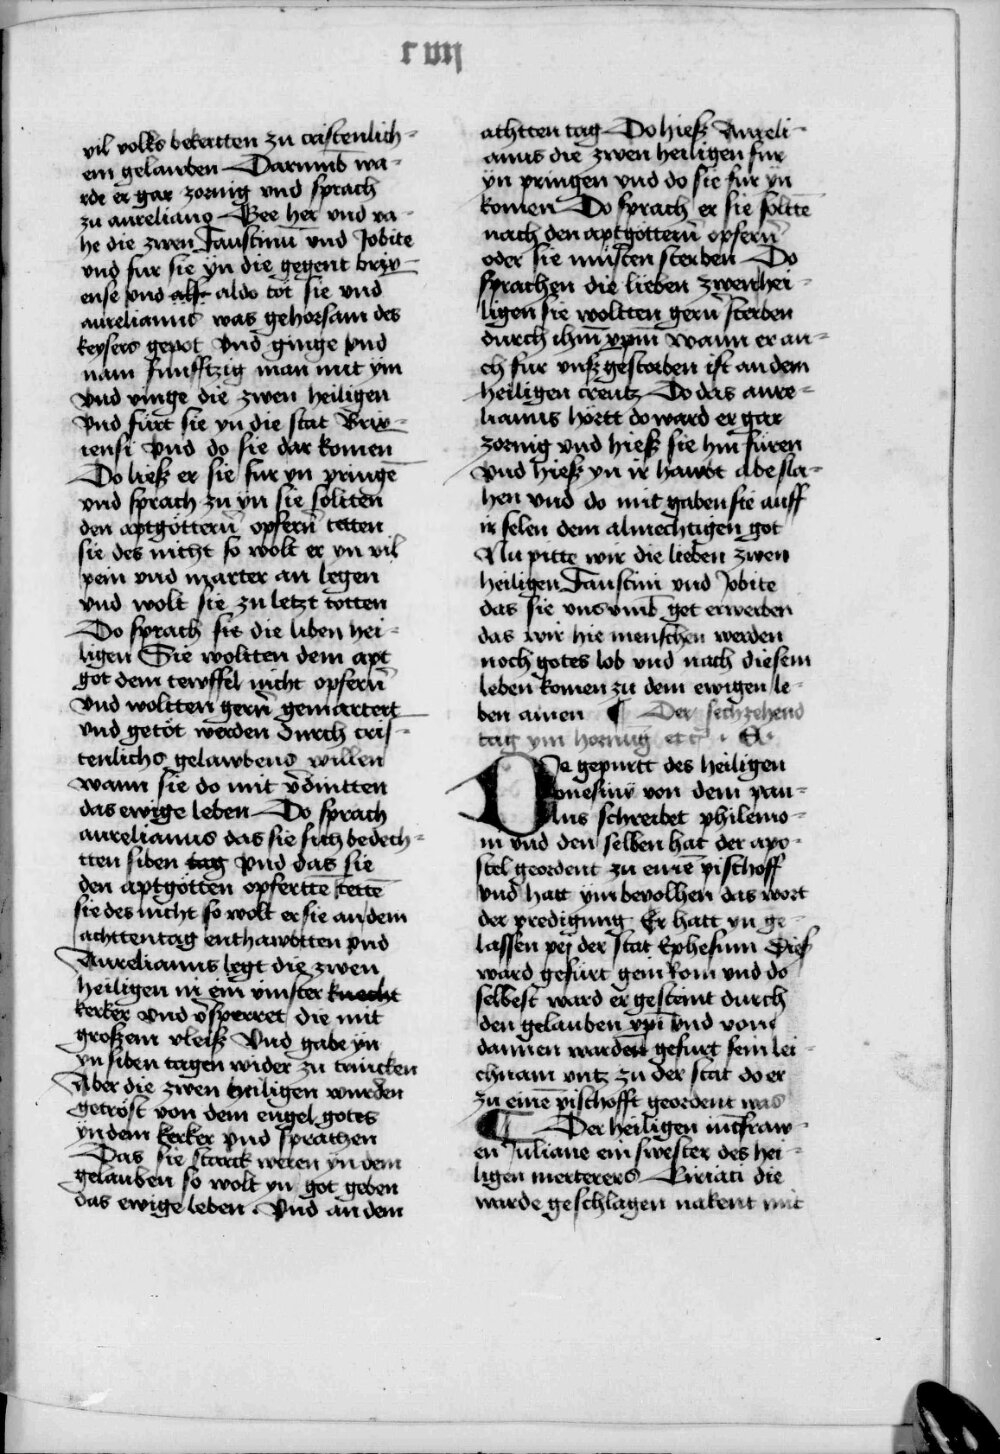 xviij
vil volks bekertten zu cristenlich-
em gelawben Darumb wa-
rde er gar zornig vnd sprach
zu aureliano Gee her vnd va-
he die zwen Faustinū vnd Jobite
vnd fur sie ÿn die gegent brix-
ense vnd als aldo tot sie vnd
aurelianus was gehorsam des
keysers gepot vnd ginge vnd
nam funffizig man mit ÿm
vnd vinge die zwen heiligen
vnd furt sie yn die stat Brix-
iensi vnd do sie dar komen
Do liesz er sie fur yn pringē
vnd sprach zu ÿn sie soltten
den aptgöttern̄ opfern̄ tetten
sie des nicht so wolt er yn vil
pein vnd marter an legen
vnd wolt sie zu letzt totten
Do sprach sie die liben hei-
ligen Sie woltten dem apt
got dem tewffel nicht opfern̄
vnd woltten gern̄ gemartert
vnd getöt werden durch cris-
tenlichs gelawbens willen
wann sie do mit v̄dintten
das ewige leben Do sprach
aurelianus das sie sich bedech-
tten siben tag vnd das sie
den aptgötten opferttē tettē
sie des nicht so wolt er sie an dem
achtten tag enthawbtten vnd
Aurelianus legt die zwen
heiligen in ein vinster knecht
kerker vnd v̄sperret die mit
groszem vleisz Vnd gabe yn
yn siben tagen wider zu trincken
Aber die zwen heiligen wurden
getröst von dem engel gotes
ÿn dem kerker vnd sprachen
Das sie starck weren ÿn dem
gelauben so wolt yn got geben
das ewige leben. Vnd an dem
achtten tag Do hiesz Aureli-
anus die zwen heiligen fur
ÿn pringen vnd do sie fur ÿn
komen Do sprach er sie solttē
nach den aptgöttern̄ opfern̄
oder sie müsten sterben Do
sprachen die lieben zwen hei-
ligen sie woltten gern̄ sterben
durch ihm̄ xpm̄ wann er au-
ch fur vnsz gestorben ist an dem
heiligen creutz Do das aure-
lianus hoett do ward er gar
zornig vnd hiesz sie hin füren
vnd hiesz yn ir hawbt abe sla-
hen vnd do mit gaben sie auff
ir selen dem almechtigen got
Nu pitte wir die lieben zwen
heiligen Faustini vnd Jobite
das sie vns vmb got erwerben
das wir hie menschen werden
noch gotes lob vnd nach diesem
leben komen zu dem ewigen le-
ben amen ¶ Der sechzehend
tag ym hornung etc
Die gepurtt des heiligen
onesimi von dem pau-
lus schreibet philemo-
ni vnd den selben hat der apo-
stel geordent zu einē pischoff
vnd hatt ym bevolhen das wort
der predigung Er hatt yn ge-
lassen pej der stat Ephesum Dies
ward gefürt gein Rom vnd do
selbest ward er gesteint durch
den gelauben xpī vnd vom
dannen warden gefurt sein lei-
chnam vntz zu der stat do er
zu einē pischofft geordent was
¶ Der heiligen iuncfraw-
en Juliane ein swester des hei-
ligen merterers Ciriaci die
warde geschlagen nakent mit